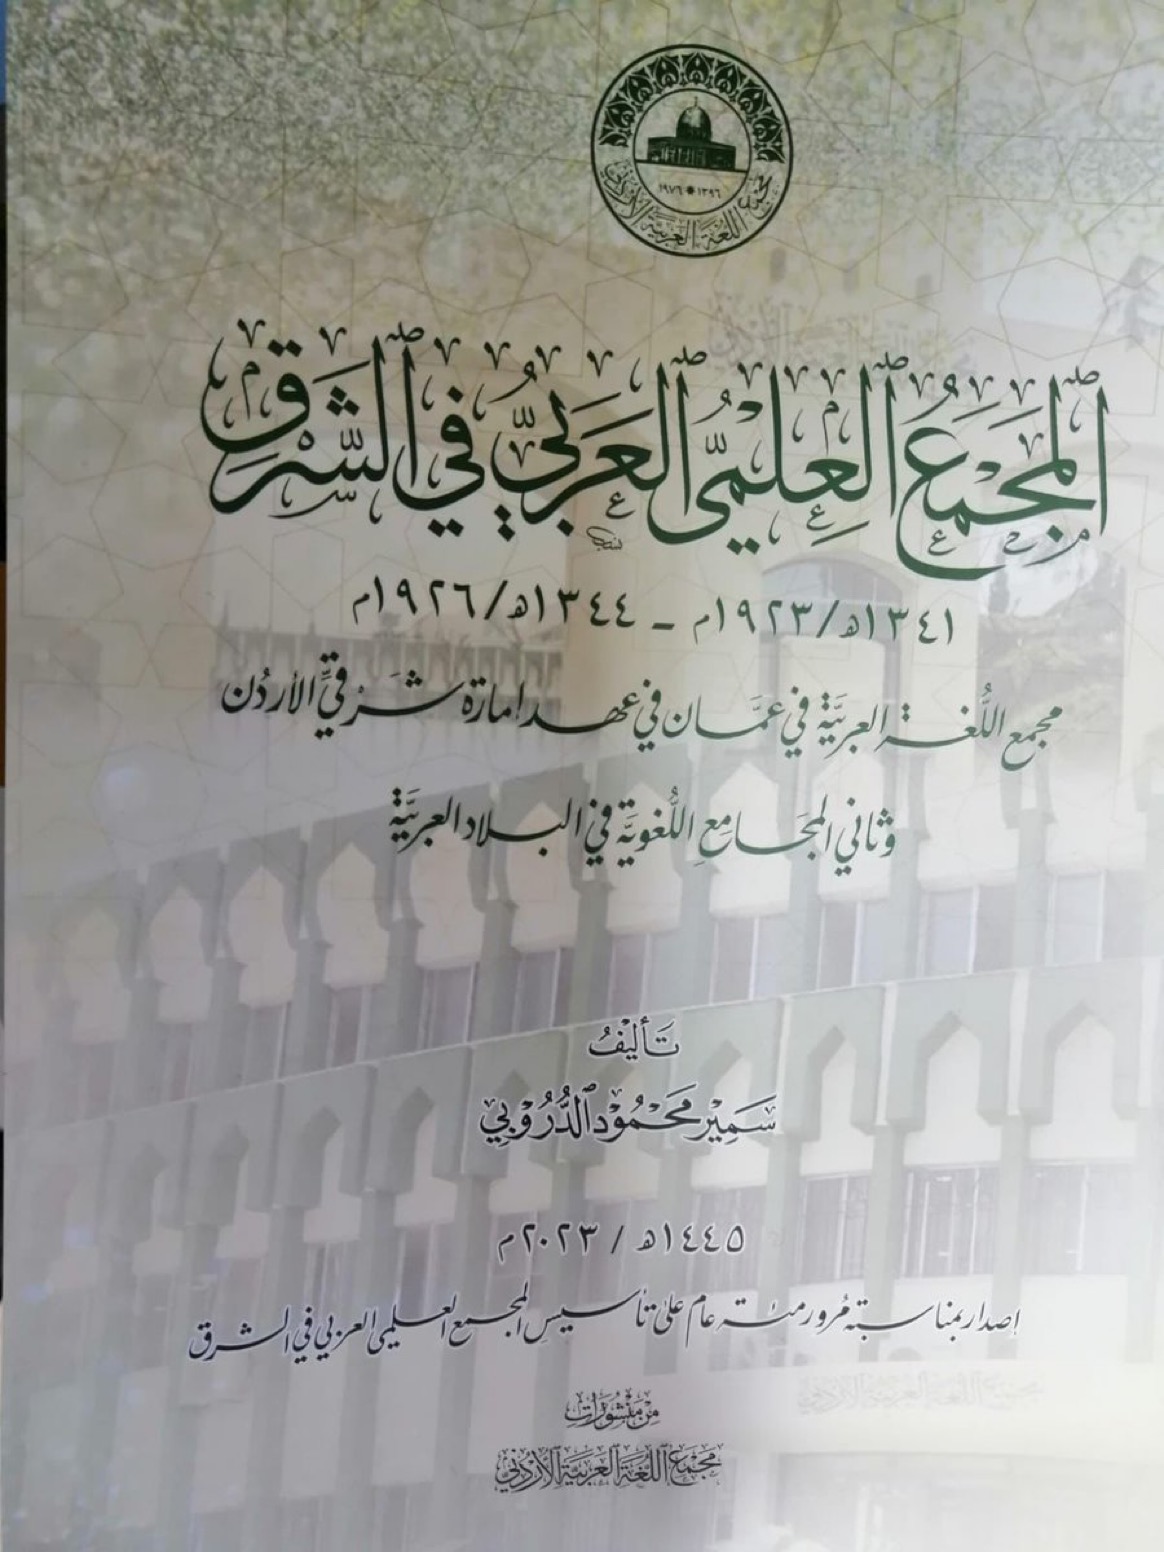 ١٣٩٦ * ١٩٧٦
مجمع اللغة العربية الأردني
المَجمَعُ العِلميُّ العَرَبيُّ في الشَّرْقِ
١٣٤١هـ/١٩٢٣م - ١٣٤٤هـ/١٩٢٦م
مجمع اللُّغة العربيَّة في عمَّان في عهد إمارة شَرْقيِّ الأردُن
وثاني المجَامِع اللُّغويَّة في البلاد العربيَّة
تَأليْفُ
سَمِيْر مَحْمُوْد الدُّرُوْبي
١٤٤٥هـ / ٢٠٢٣م
إصدار بمناسبة مُرور مئة عام على تأسيس المجمع العلمي العربي في الشرق
مِنْ مَنْشُوْرَات
مَجْمَع اللُّغَة العَرَبِيَّة الأُرْدُنيّ